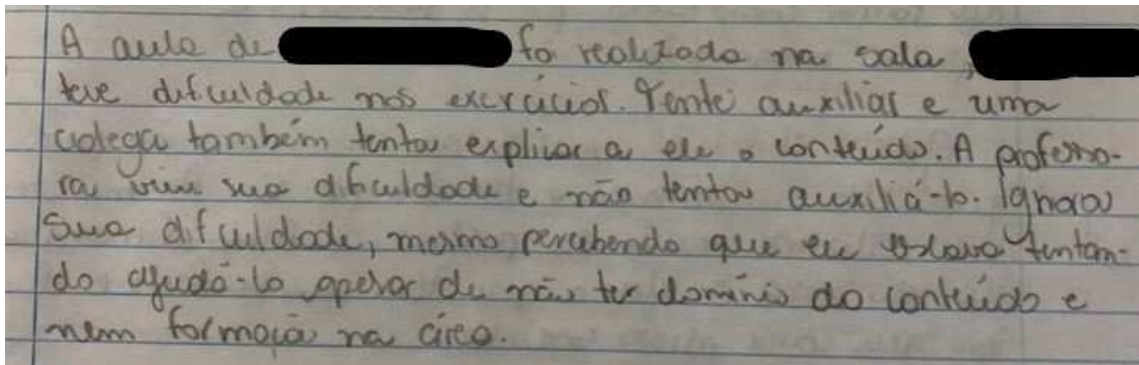 A aula de fo realizada na sala,
teve dificuldade nos exercícios. Tentei auxiliar e uma
colega também tentou explicar a ele o conteúdo. A professo-
ra viu sua dificuldade e não tentou auxiliá-lo. Ignorou
sua dificuldade, mesmo percebendo que eu estava tentan-
do ajudá-lo apesar de não ter domínio do conteúdo e
nem formação na área.